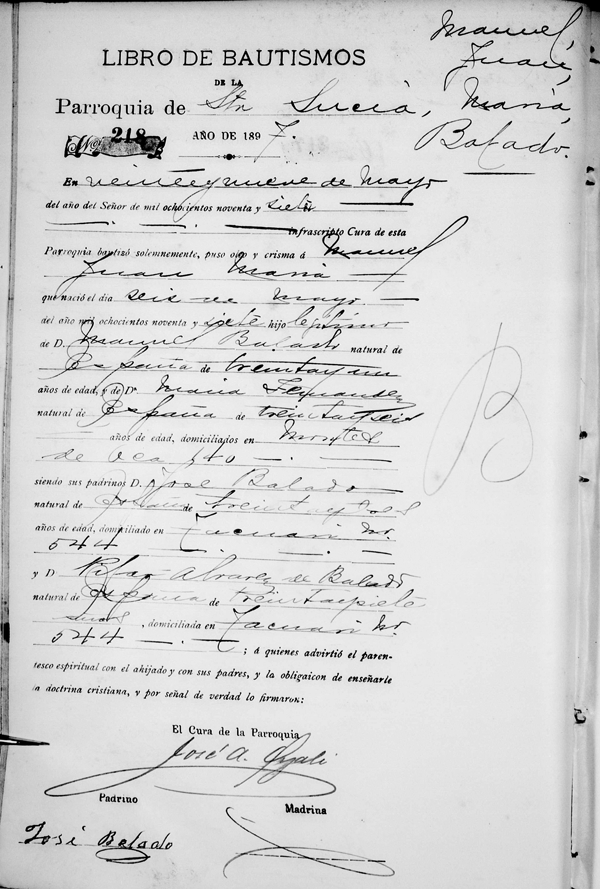 Manuel,
Juan,
Maria,
Balado.
LIBRO DE BAUTISMOS
DE LA
Parroquia de Sta Lucia,
No. 218 AÑO DE 1897.
En veinte y nueve de Mayo
del año del Señor de mil ochocientos noventa y siete
infrascripto Cura de esta
Parroquia bautizó solemnemente, puso oleo y crisma á Manuel
Juan Maria
que nació el dia seis de Mayo
del año mil ochocientos noventa y siete hijo legitimo
de D. Manuel Balado natural de
España de treinta y un
años de edad, y de Da. Maria Fernandez
natural de España de treinta y seis
años de edad, domiciliados en Montes
de Oca 940
siendo sus padrinos D. José Balado
natural de España de treinta y
años de edad, domiciliado en Tacuari No.
544
y D Pilar Alvarez de Balado
natural de España de treinta y siete
años, domiciliada en Tacuari No.
544 ; á quienes advirtió el paren-
tesco espiritual con el ahijado y con sus padres, y la obligaicon de enseñarle
la doctrina cristiana, y por señal de verdad lo firmaron:
El Cura de la Parroquia
José A.
Padrino Madrina
José Balado
B